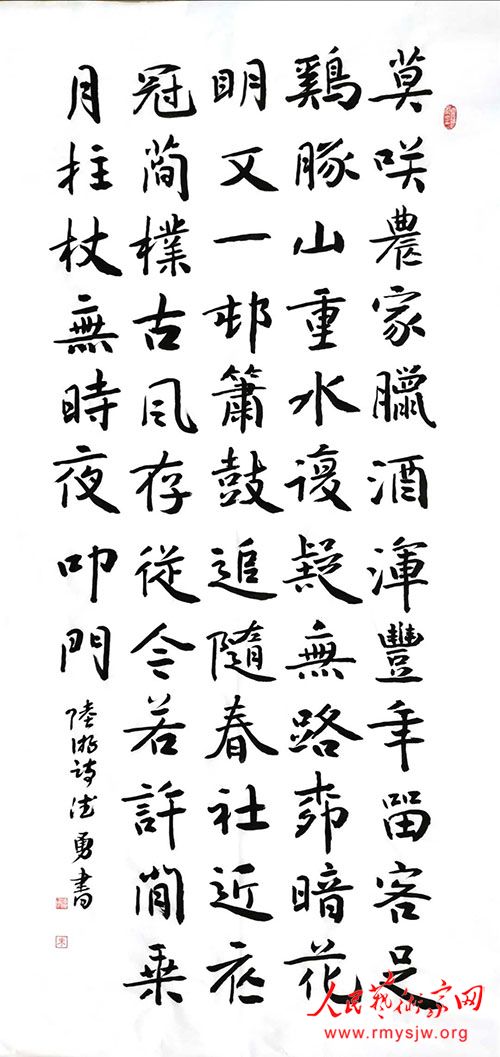 莫咲農家臘酒渾豐年留客足
鷄豚山重水複疑無路柳暗花
明又一邨簫鼓追隨春社近衣
冠簡樸古風存從今若許閒乘
月拄杖無時夜叩門
陸游詩 勇書
人民藝術家网
www.rmysjw.org